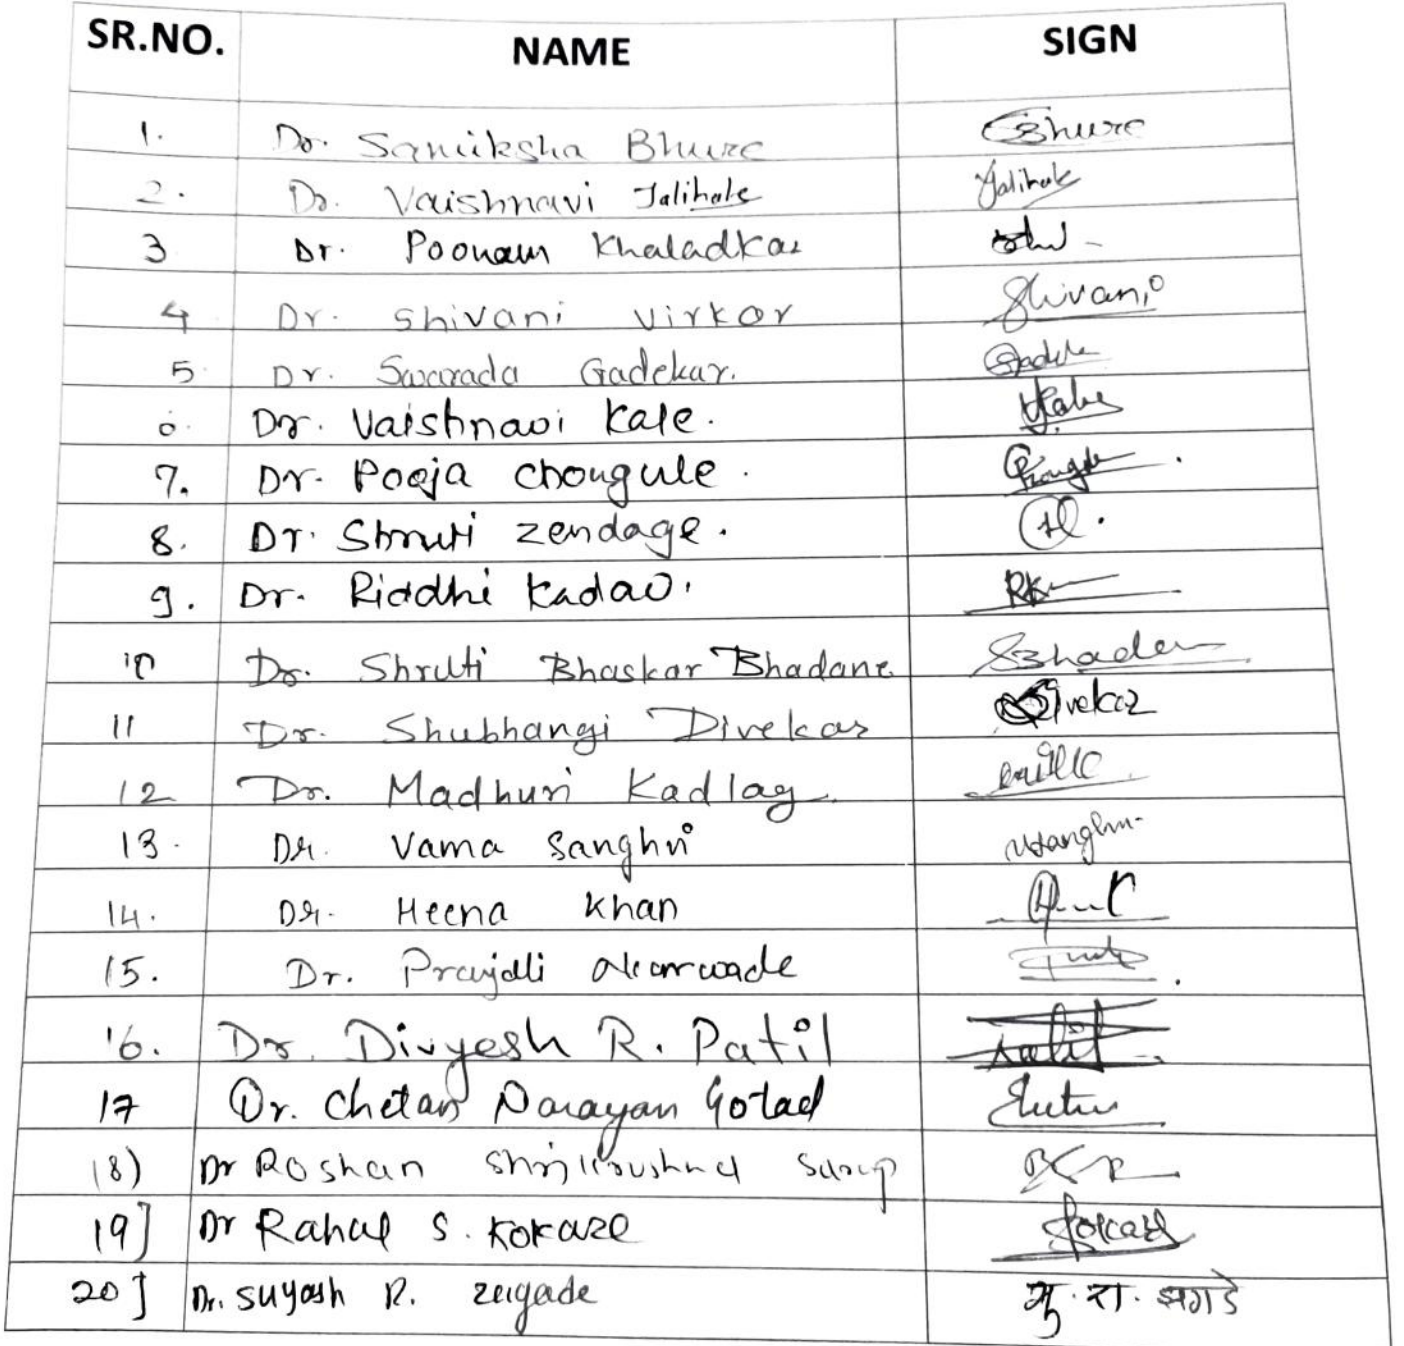 SR.NO. NAME SIGN
1. Dr. Samiiksha Bhure Bhure
2. Dr. Vaishnavi Jalihale Jalihale
3 Dr. Poonam Khaladkar
4 Dr. Shivani Virkar Shivani
5 Dr. Swarada Gadekar.
6. Dr. Vaishnavi Kale. Kale
7. Dr. Pooja Chougule.
8. Dr. Shruti Zendage.
9. Dr. Riddhi Kadao. RK
10 Dr. Shruti Bhaskar Bhadane
11 Dr. Shubhangi Divekar Divekar
12 Dr. Madhuri Kadlag.
13. Dr. Vama Sanghvi
14. Dr. Heena Khan
15. Dr. Pranjali
16. Dr. Divyesh R. Patil
17 Dr. Chetan Narayan Gotad
18) Dr Roshan
19] Dr Rahul S. Kokare Kokare
20] Dr. Suyash R. Zugade सु. रा. झगडे